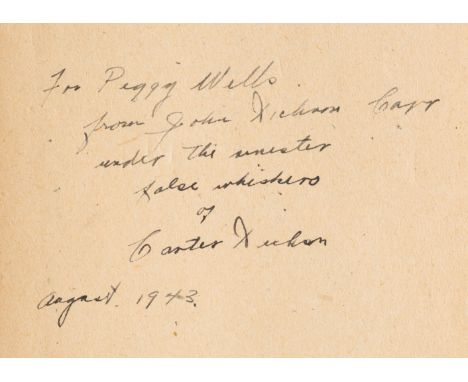 For Peggy Wells
from John Dickson Carr
under the sinister
false whiskers
of
Carter Dickson
August 1943.